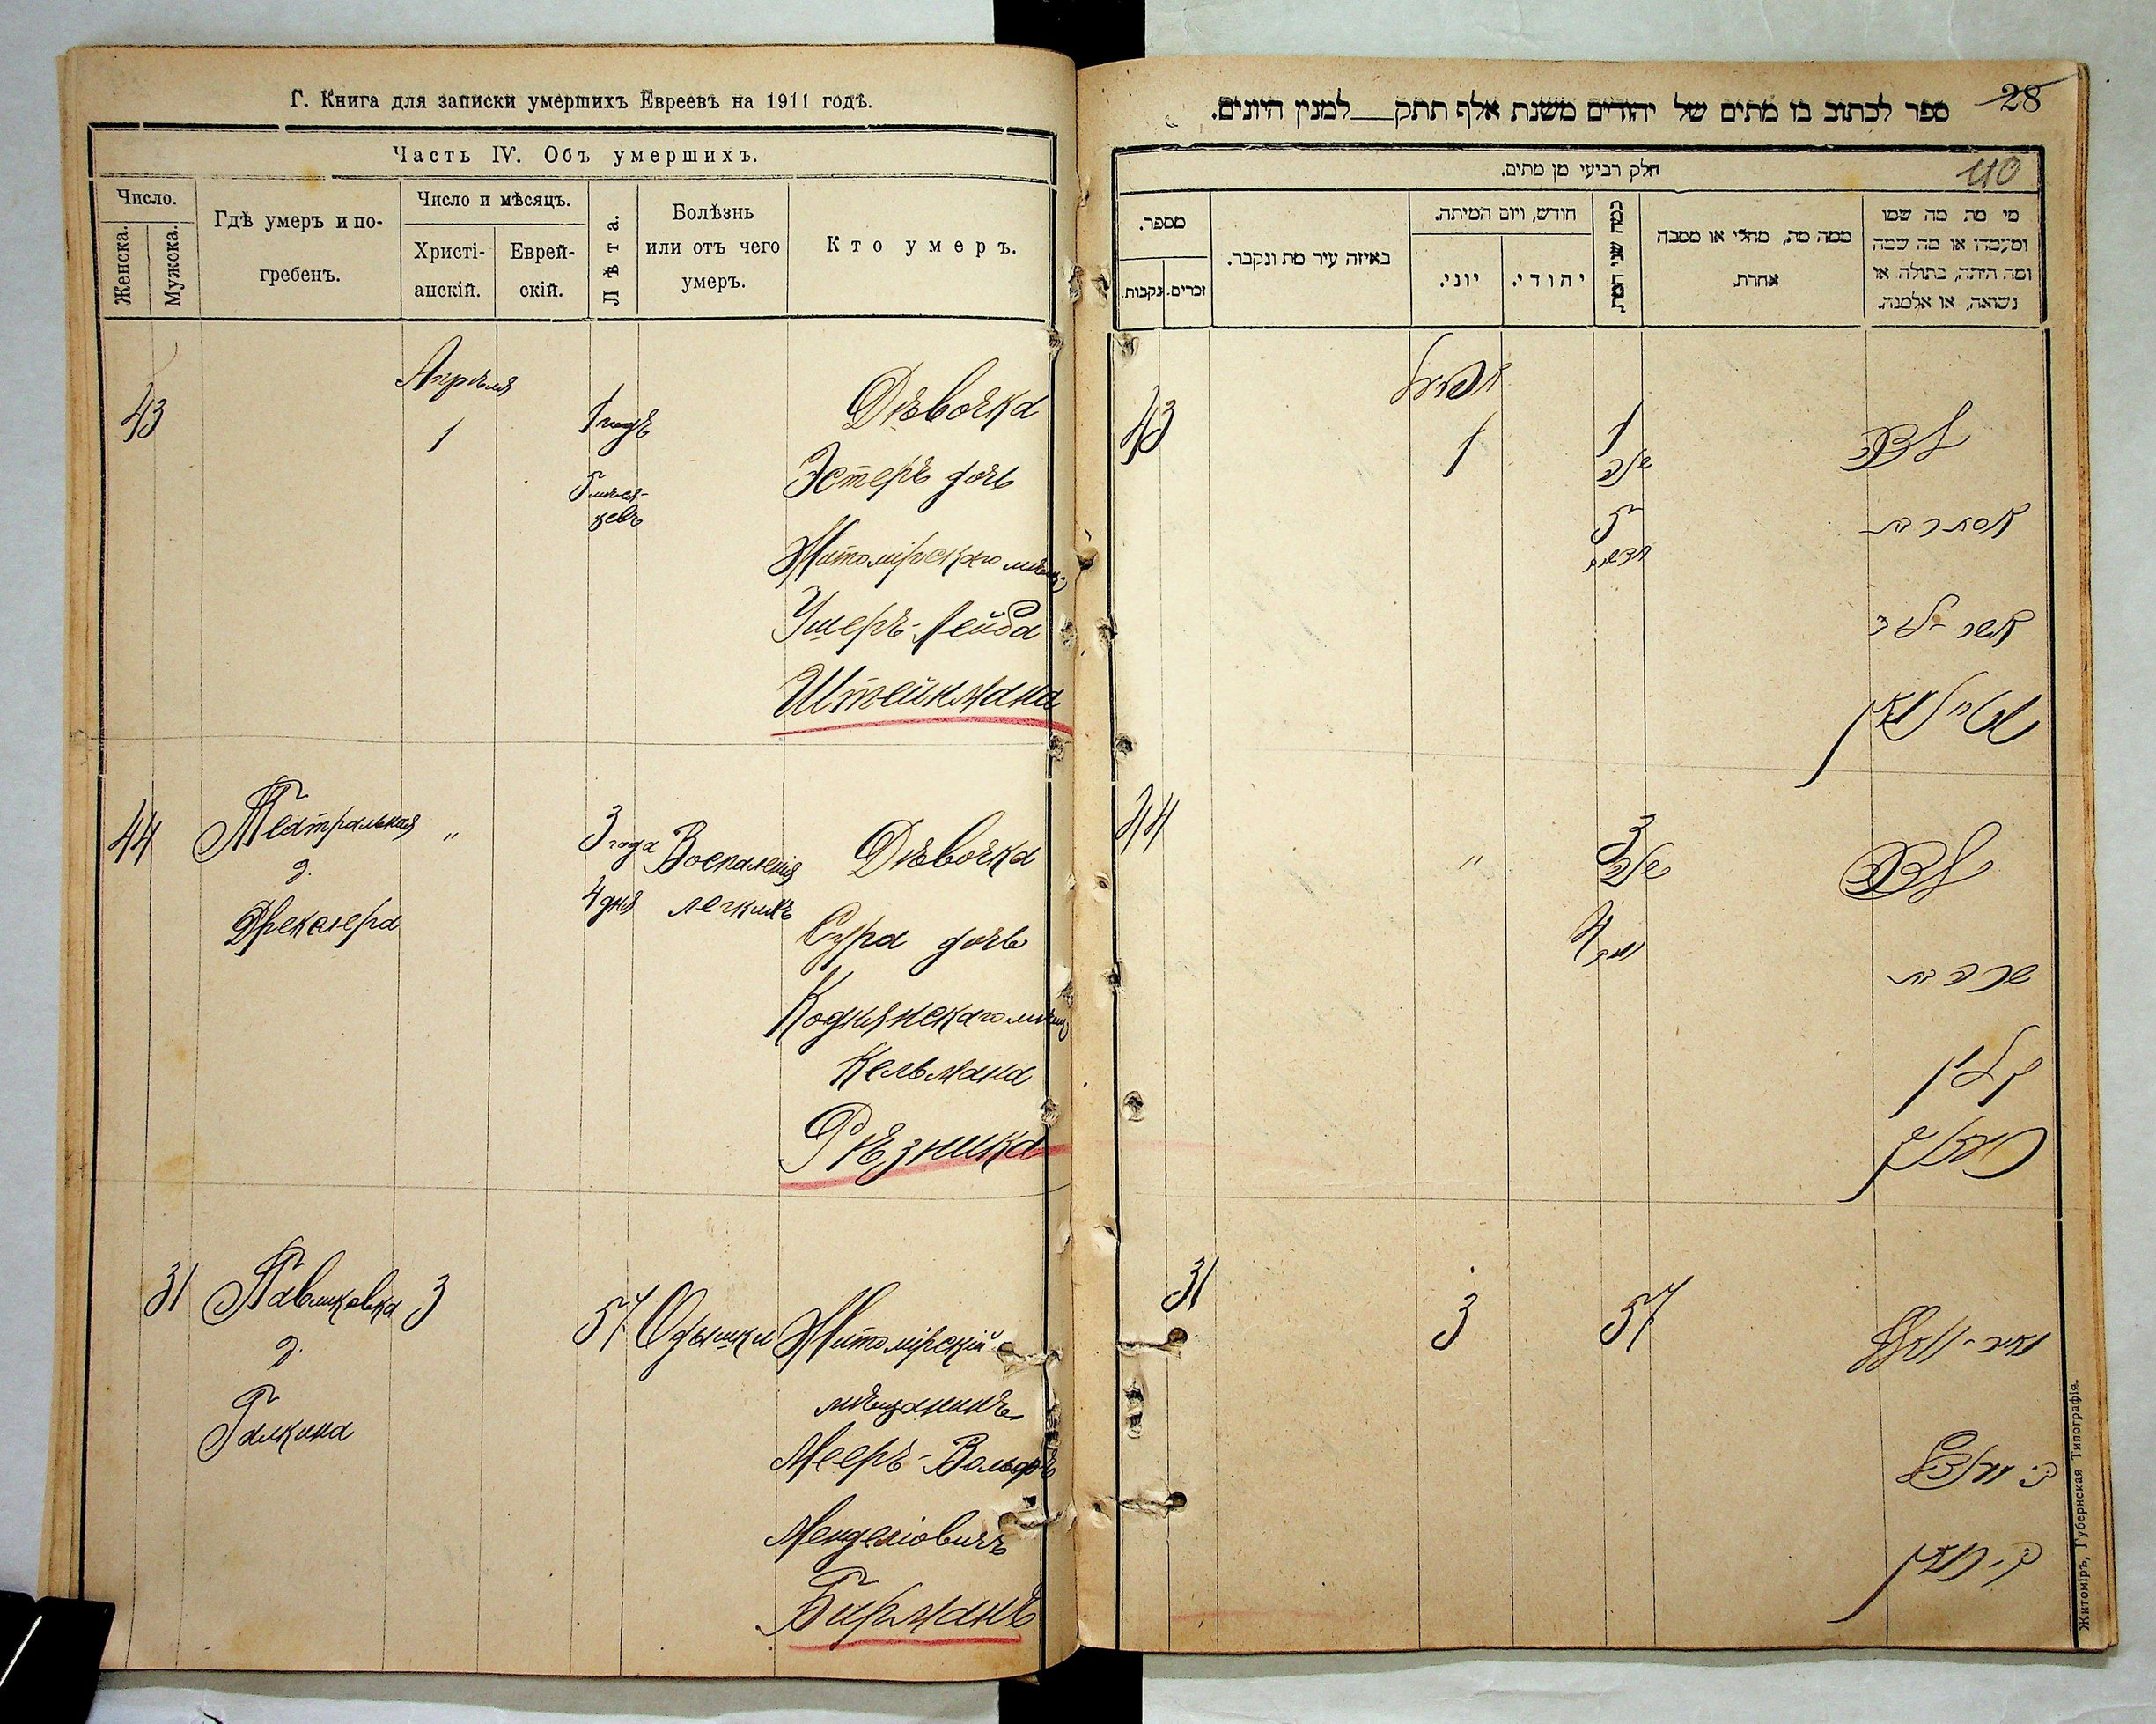 Г. Книга для записки умершихъ Евреевъ на 1911 годъ.
Часть IV. Объ умершихъ.
Число.
Женска.
Мужска.
Гдѣ умеръ и по-
гребенъ.
Число и мѣсяцъ.
Христі-
анскій.
Еврей-
скій.
Лѣта.
Болѣзнь
или отъ чего
умеръ.
Кто умеръ.
43
Апрѣля
1
1 годъ
5 мѣся-
цевъ
Дѣвочка
Эстеръ дочь
Житомірскаго мѣщ.
Ушеръ-Лейба
Штейнмана
44
Театральная
д.
Дрекслера
"
3 года
4 дня
Воспаленія
легкихъ
Дѣвочка
Сура дочь
Коднянскаго мѣщ
Кельмана
Рѣзника
31
Павликовка
д.
Галкина
3
57
Одышки
Житомірскій
мѣщанинъ
Мееръ-Вольфъ
Менделіовичъ
Бирманъ
28
ספר לכתוב בו מתים של יהודים משנת אלף תתק למנין היונים.
40
חלק רביעי מן מתים.
מספר.
נקבות.
זכרים.
באיזה עיר מת ונקבר.
חודש, ויום המיתה.
יוני.
יהודי.
כמה שני המת.
ממה מת, מחלי או מסבה
אחרת.
מי מת מה שמו
ומעמדו או מה שמה
ומה היתה, בתולה או
נשואה, או אלמנה.
43
אפריל
1
1
שנה
5
חדשים
ילדה
אסתר בת
אשר ליב
שטיינמאן
44
"
3
שנה
4
ימים
ילדה
שרה בת
קלמן
רעזניק
31
3
57
מאיר-וואלף
בירמאן
Житоміръ, Губернская Типографія.